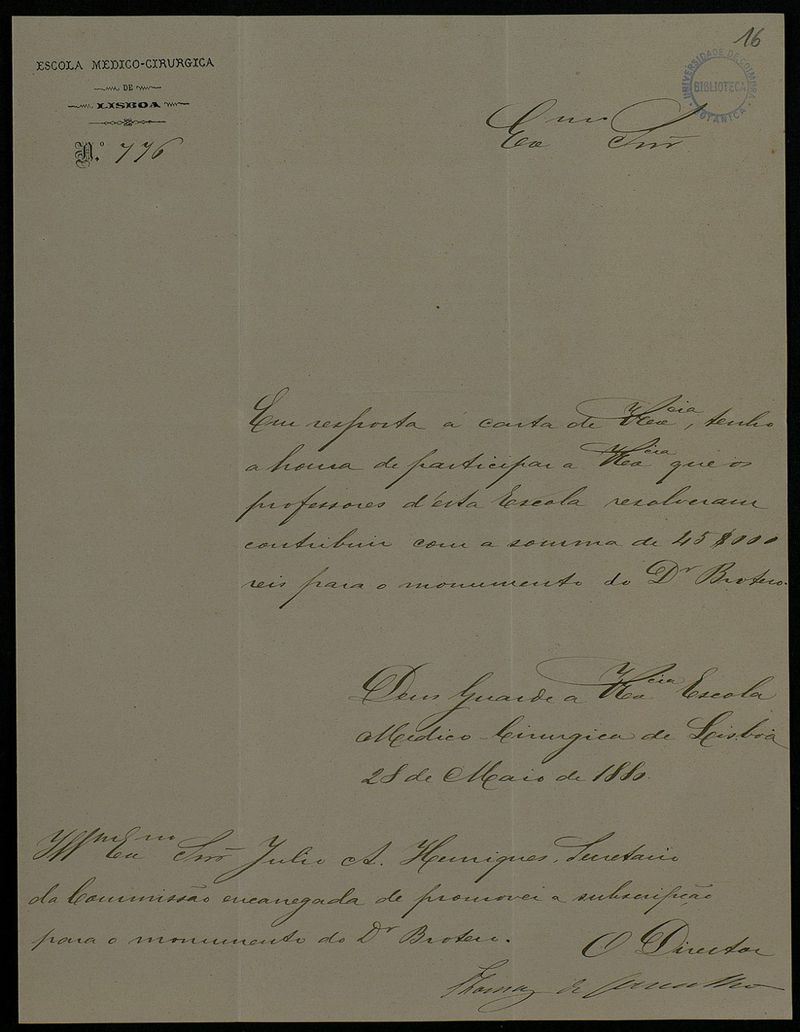 16
ESCOLA MEDICO-CIRURGICA
DE
LISBOA
N.º 776
UNIVERSIDADE DE COIMBRA
BIBLIOTECA
BOTANICA
Exmo Snr
Em resposta á carta de V Exa, tenho
a honra de participar a V Exa que os
professores d'esta Escola resolveram
contribuir com a somma de 45$000
reis para o monumento do Dr Brotero.
Deus Guarde a V Exa Escola
Medico-Cirurgica de Lisboa
28 de Maio de 1880.
Illmo Exmo Snr Julio A. Henriques, Secretario
da Commissão encarregada de promover a subscripção
para o monumento do Dr Brotero.
O Director
Thomaz de Carvalho